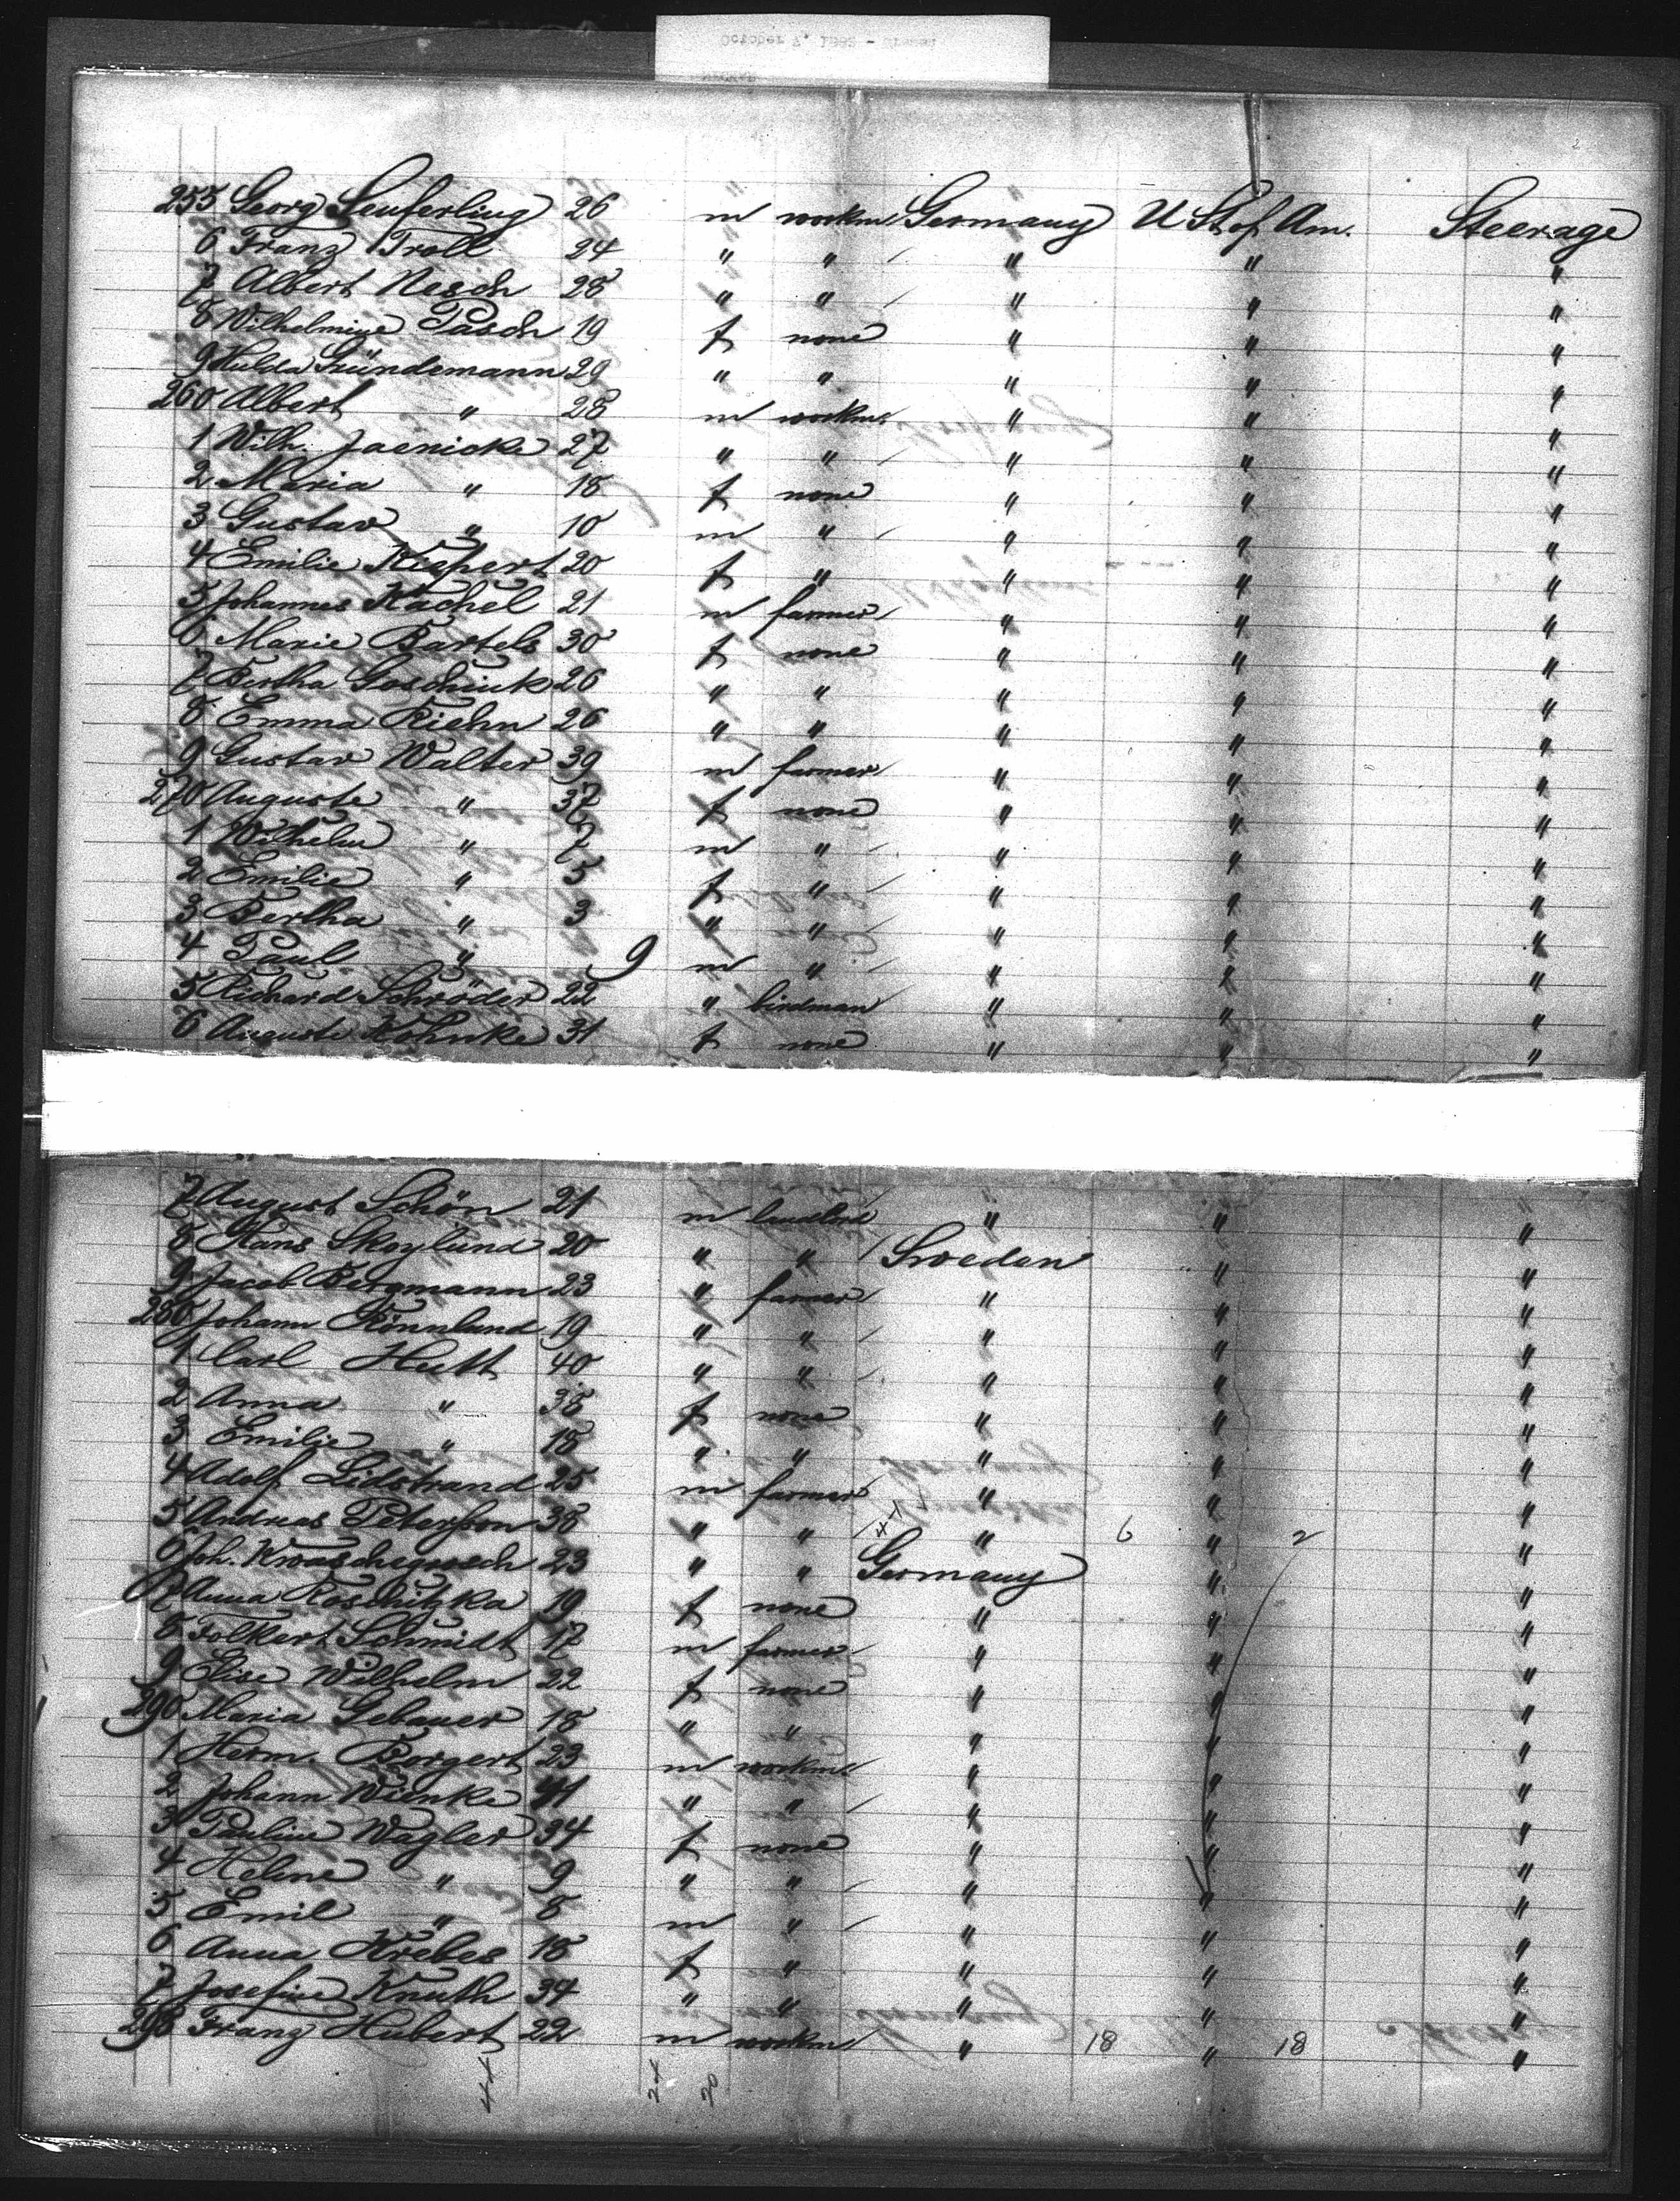 255 Georg Seuferling 26 m workm Germany U St of Am. Steerage
6 Franz Troll 24 " " " " "
7 Albert Nesch 28 " " " " "
8 Wilhelmine Pasch 19 f none " " "
9 Hulda Gründemann 29 " " " " "
260 Albert " 28 m workm " " "
1 Wilh. Jaenicke 27 " " " " "
2 Maria " 18 f none " " "
3 Gustav " 10 m " " " "
4 Emilie Kiepert 20 f " " " "
5 Johannes Kächel 21 m farmer " " "
6 Marie Bartels 30 f none " " "
7 Bertha 26 " " " " "
8 Emma Riehn 26 " " " " "
9 Gustav Walter 39 m farmer " " "
270 Auguste " 37 f none " " "
1 Wilhelm " 7 m " " " "
2 Emilie " 5 f " " " "
3 Bertha " 3 " " " " "
4 Paul " 9 m " " " "
5 Richard Schröder 22 " birdman " " "
6 Auguste Kohnke 31 f none " " "
7 August Schön 21 m landlord " " "
8 Hans Skoglund 20 " " Sweden " "
9 Jacob Bergmann 23 " farmer " " "
280 Johann Rönnlund 19 " " " " "
1 Carl Hutt 40 " " " " "
2 Anna " 38 f none " " "
3 Emilie " 18 " " " " "
4 Adolf Lidstrand 25 m farmer " " "
5 Andreas Peterson 38 " " " 6 " 2 "
6 Joh. 23 " " Germany " "
7 Anna Roschitzka 19 f none " " "
8 Folkert Schmidt 17 m farmer " " "
9 Elise Wilhelm 22 f none " " "
290 Maria Gebauer 18 " " " " "
1 Herm. Borgert 23 m workm " " "
2 Johann Wienke 41 " " " " "
3 Pauline Wagler 34 f none " " "
4 Helene " 9 " " " " "
5 Emil " 8 m " " " "
6 Anna Krebes 18 f " " " "
7 Josefine Knuth 34 " " " " "
298 Franz Hubert 22 m workm " 18 " 18 "
44 24 20